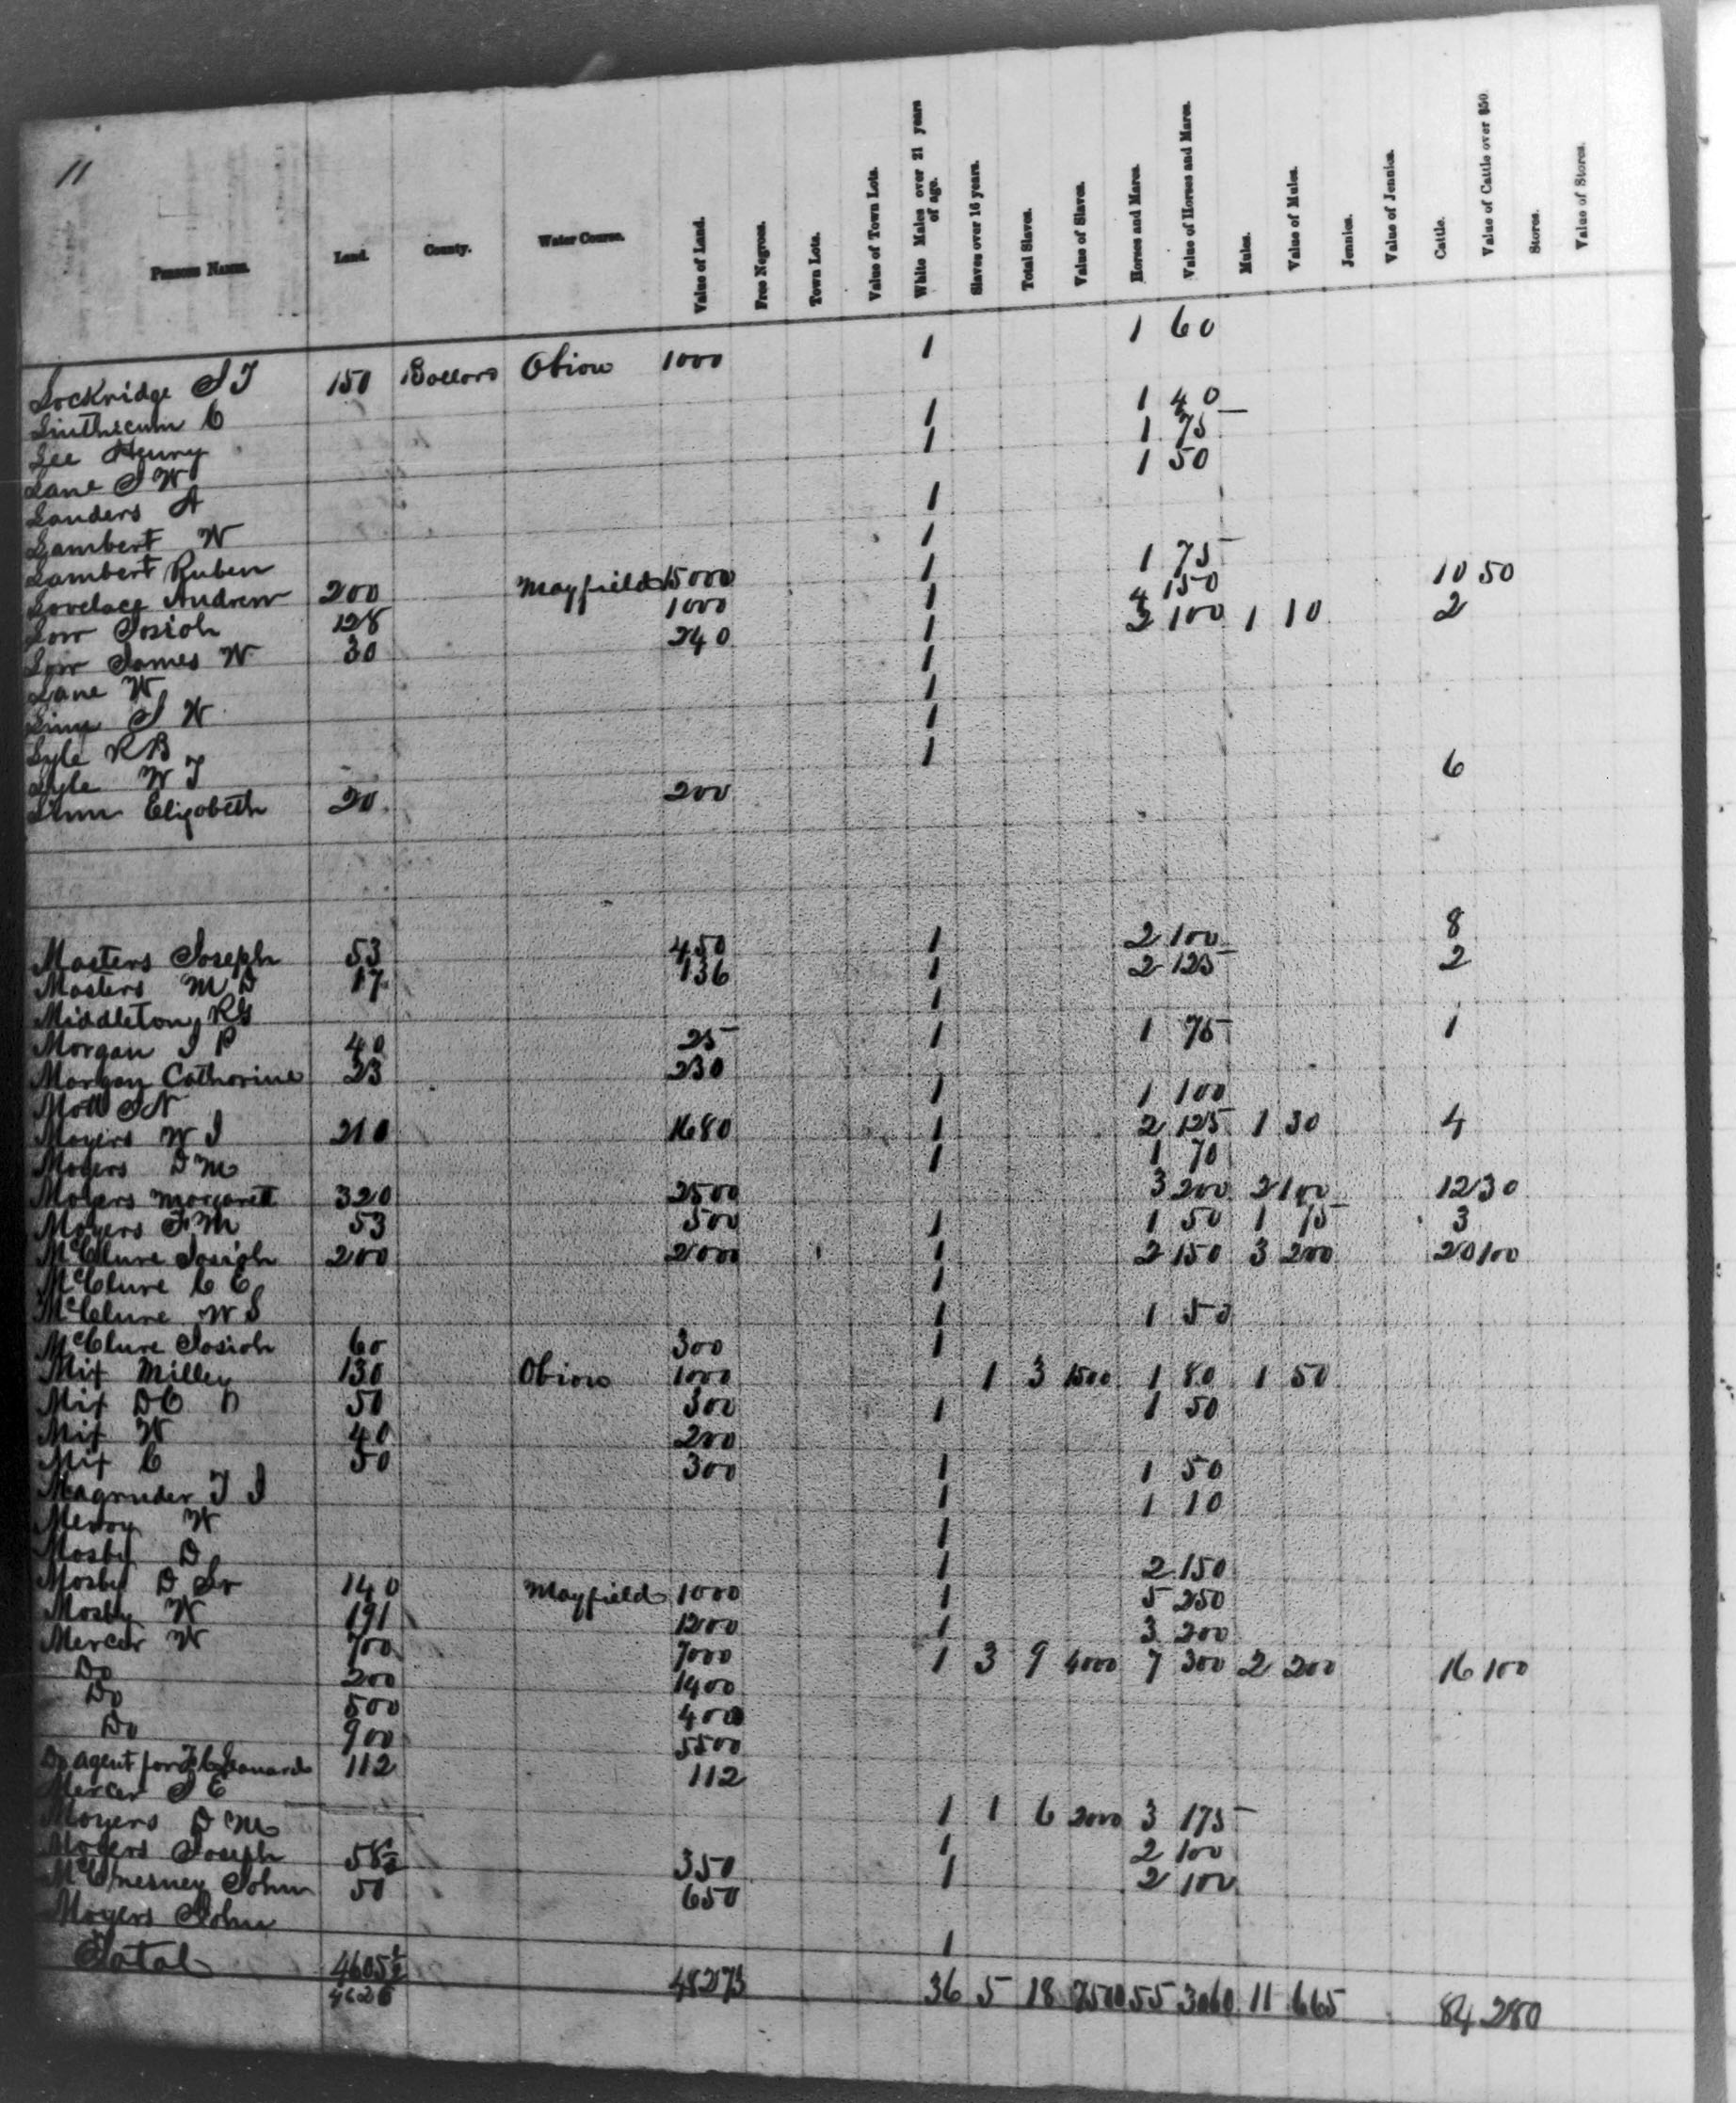 11
Persons Names. Land. County. Water Course. Value of Land. Free Negroes. Town Lots. Value of Town Lots. White Males over 21 years of age. Slaves over 16 years. Total Slaves. Value of Slaves. Horses and Mares. Value of Horses and Mares. Mules. Value of Mules. Jennies. Value of Jennies. Cattle. Value of Cattle over $50. Stores. Value of Stores.
Lockridge S T 150 Ballard Obion 1000 1 1 60
Linthicum C 1 1 40
Lee Henry 1 1 75
Lane J W 1 50
Landers A 1
Lambert W 1
Lambert Ruben 1 1 75
Lovelace Andrew 200 Mayfield 1500 1 4 150 10 50
Low Josiah 128 1000 1 2 100 1 10 2
Low James W 30 240 1
Lane W 1
J W 1
Lyle R B 1
Lyle W T
Linn Elizabeth 20 200 6
Masters Joseph 53 450 1 2 100 8
Masters M D 17 136 1 2 125 2
Middleton R G 1
Morgan J P 40 25 1 1 75 1
Morgan Catharine 23 230
Mott J N 1 1 100
Moyers W J 210 1680 1 2 125 1 30 4
Moyers D M 1 1 70
Moyers Margarett 320 2500 3 200 2 100 12 30
Moyers F M 53 500 1 1 50 1 75 3
McClure Josiah 200 2000 1 2 150 3 200 20 100
McClure C C 1
McClure W S 1 1 50
McClure Josiah 60 300 1
Mix Milley 130 Obion 1000 1 3 1500 1 80 1 50
Mix D C 50 300 1 1 50
Mix W 40 200
Mix C 50 300 1 1 50
Magruder T J 1 1 10
W 1
Mosby D 1 2 150
Mosby D Sr 140 Mayfield 1000 1 5 250
Mosby W 191 1200 1 3 200
Mercer W 700 7000 1 3 9 4000 7 300 2 200 16 100
Do 200 1400
Do 500 4000
Do 900 5500
Do agent for Leonard 112 112
Mercer J E 1 1 6 2000 3 175
Moyers D M 1 2 100
Moyers Joseph 58½ 350 1 2 100
McChesney John 50 650
Moyers John 1
Total 4605½ 48273 36 5 18 7500 55 3060 11 665 84 280